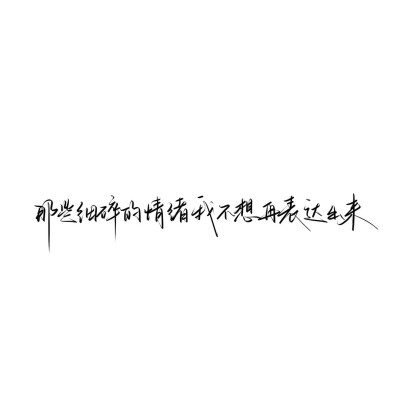 那些细碎的情绪我不想再表达出来